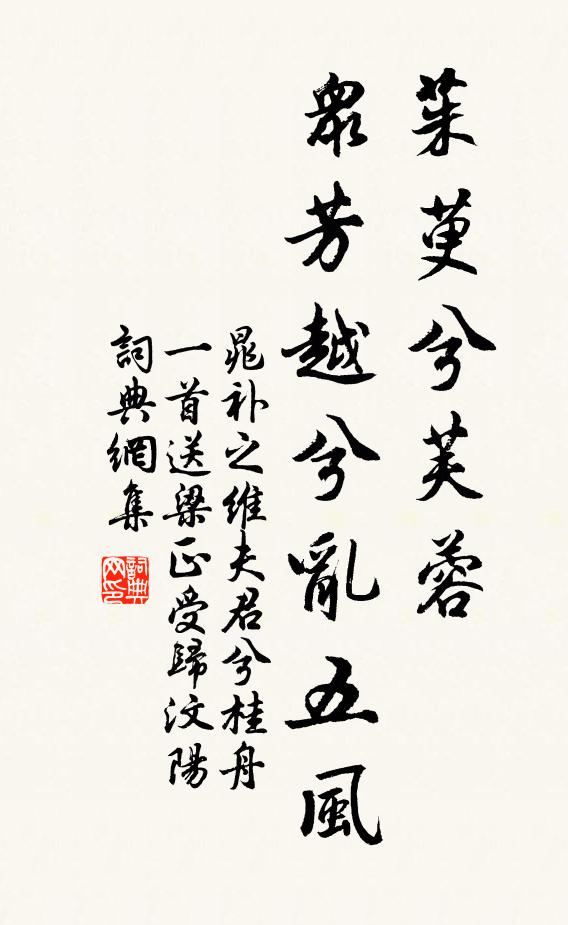 茱萸兮芙蓉
衆芳越兮亂五風
晁补之維夫君兮桂舟
一首送梁正受歸汶陽
詞典網集
詞典网印